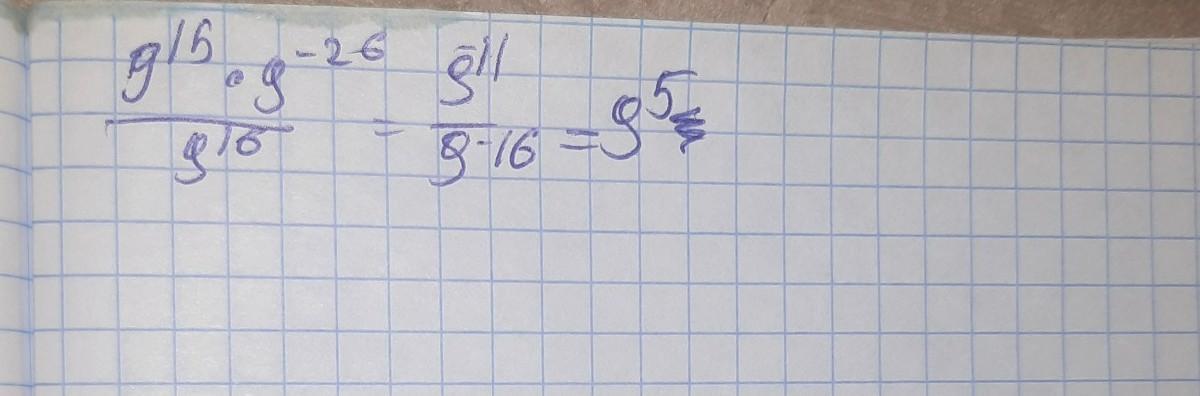 9^15 · 9^-26 / 9^16 = 9^-11 / 9^-16 = 9^5